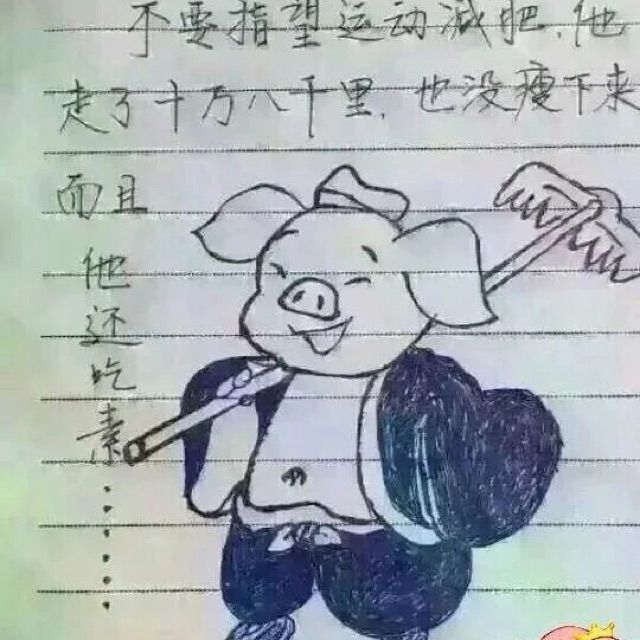 不要指望运动減肥.他
走了十万八千里.也没瘦下来
而且
他
还
吃
素......